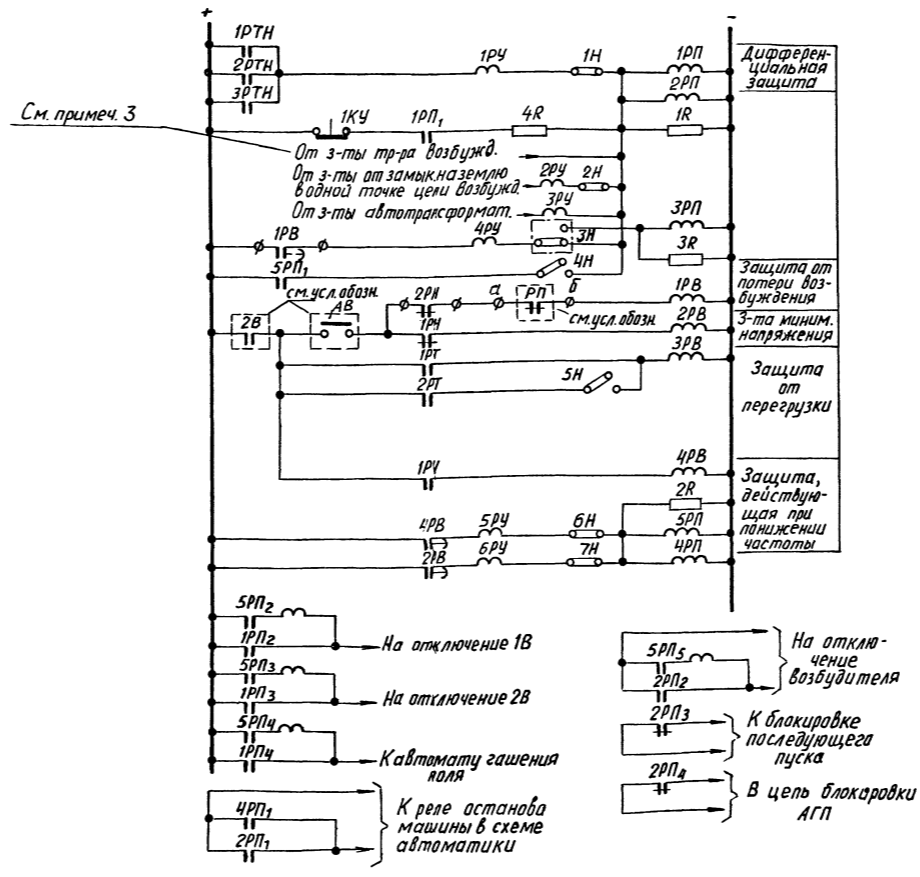 +
-
1РТН
2РТН
3РТН
1РУ
1Н
1РП
Дифферен-
циальная
защита
2РП
См. примеч. 3
1КУ
1РП1
4R
1R
От з-ты тр-ра возбужд.
От з-ты от замык. на землю
в одной точке цепи возбужд.
2РУ
2Н
От з-ты автотрансформат.
3РУ
3РП
1РВ
4РУ
3Н
3R
5РП1
4Н
Защита от
потери воз-
буждения
см. усл. обозн.
2РН
а
РП
б
1РВ
2В
АВ
1РН
см. усл. обозн.
2РВ
З-та миним.
напряжения
1РТ
3РВ
2РТ
5Н
Защита
от
перегрузки
1РЧ
4РВ
Защита,
действую-
щая при
понижении
частоты
2R
4РВ
5РУ
6Н
5РП
2РВ
6РУ
7Н
4РП
5РП2
1РП2
На отключение 1В
5РП3
1РП3
На отключение 2В
5РП4
1РП4
К автомату гашения
поля
4РП1
2РП1
К реле останова
машины в схеме
автоматики
5РП5
2РП2
На отклю-
чение
возбудителя
2РП3
К блокировке
последующего
пуска
2РП4
В цепь блокировки
АГП